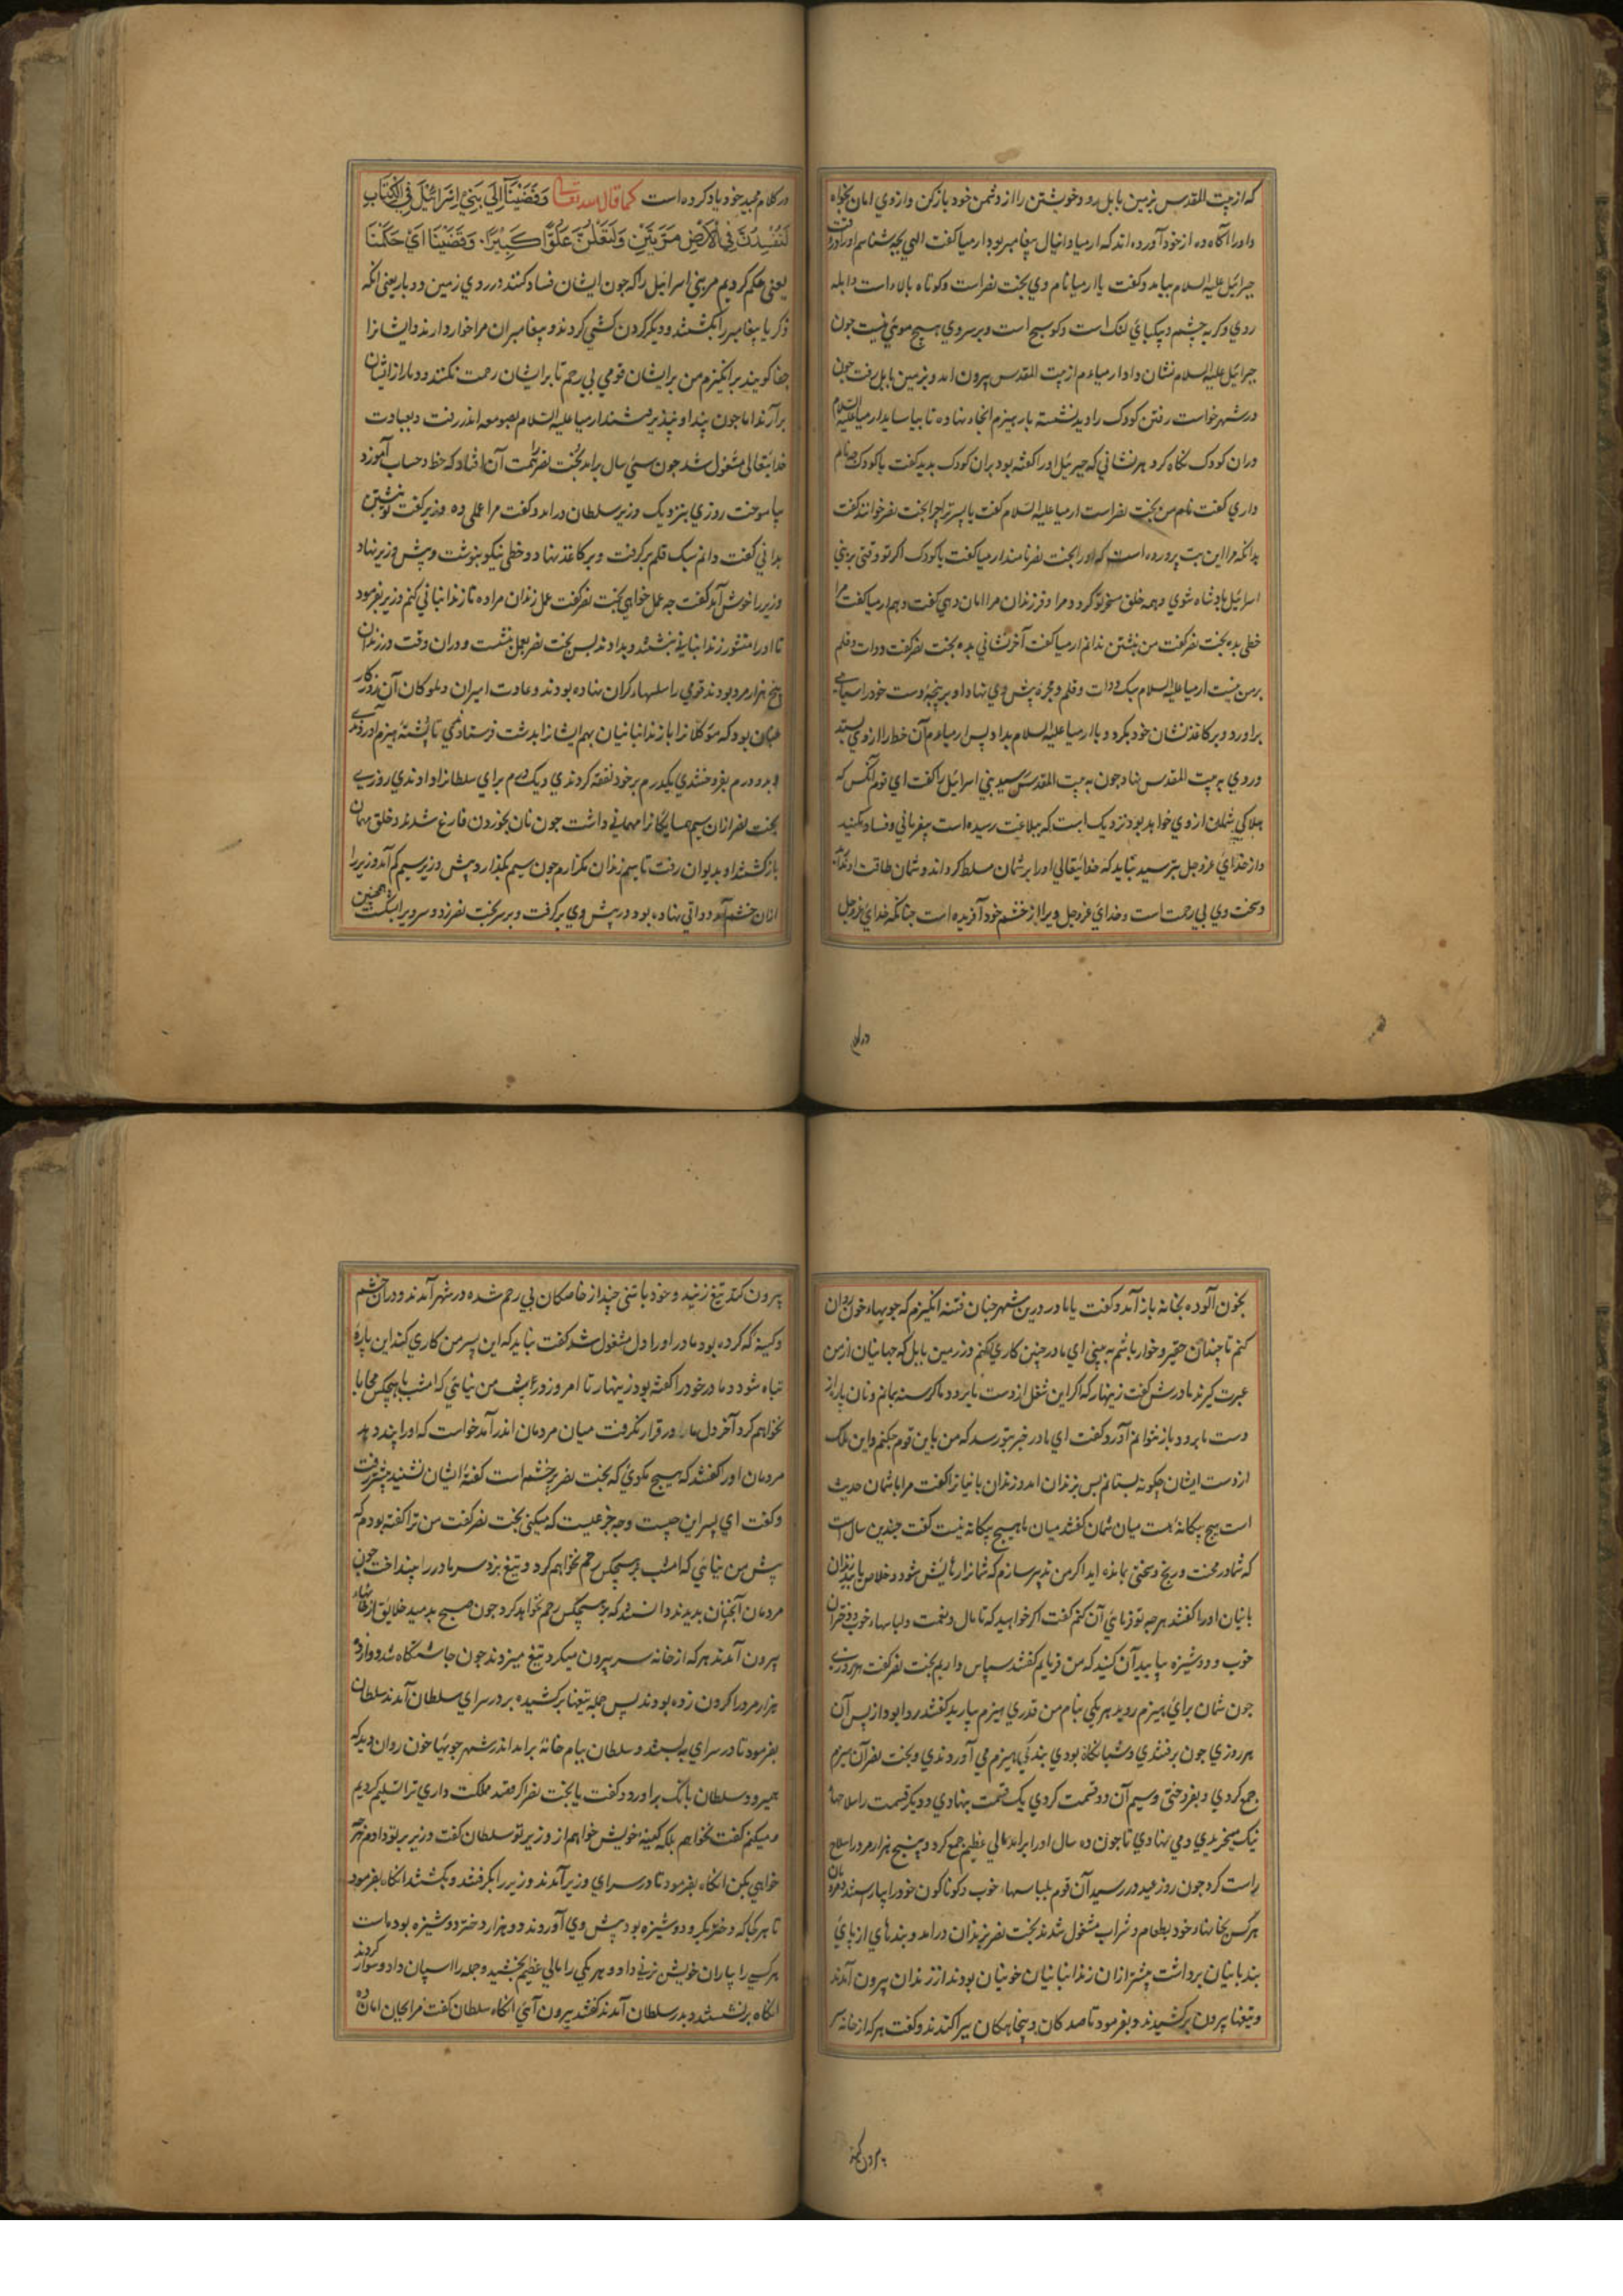 که از بیت المقدس بزمین بابل رو و خویشتن را از دشمن خود باز کن و از وی امان بخواه
و او را آگاه ده از خود آورده اند که ارمیا و دانیال پیغامبر بود ارمیا گفت الهی بچه شناسم او را در وقت
جبرائیل علیه السلام بیامد و گفت یا ارمیا نام وی بخت نصر است و کوتاه بالا است و ابله
روی و کربه چشم و بیکپای لنک است و کوسج است و بر سر وی هیچ موئی نیست چون
جبرائیل علیه السلام نشان داد ارمیا ءم از بیت المقدس بیرون امد و بزمین بابل رفت چون
در شهر خواست رفتن کودک را دید نشسته بار هیزم انجا نهاده تا بیاساید ارمیا علیه السلام
در ان کودک نکاه کرد هر نشانی که جبرئیل او را کفته بود بران کودک بدید کفت یا کودک چه نام
داری کفت نام من بخت نصر است ارمیا علیه السلام کفت یا پسر ترا چرا بخت نصر خوانند کفت
بدانکه مرا این بت پرورده است که او را بخت نصر نامند ارمیا کفت یا کودک اکر تو وقتی بر بنی
اسرائیل پادشاه شوی و همه خلق مسخر تو کردد مرا و فرزندان مرا امان دهی کفت دهم ارمیا کفت مرا
خطی بده بخت نصر کفت من نبشتن ندانم ارمیا کفت آخر نشانی بده بخت نصر کفت دوات و قلم
بر من نیست ارمیا علیه السلام سبک دوات و قلم و محبره پیش وی نهاد او بر پنجهٔ دست خود را سیاهی
براورد و بر کاغذ نشان خود بکرد و با ارمیا علیه السلام بداد پس ارمیا ءم آن خط را از وی بستد
و روی به بیت المقدس نهاد چون به بیت المقدس رسید بنی اسرائیل را کفت ای قوم آنکس که
هلاکی شمان از وی خواهد بود نزدیک است که ببلاغت رسیده است بیفرمانی و فساد مکنید
و از خدای عزوجل بترسید نباید که خدایتعالی او را بر شمان مسلط کرداند و شمان طاقت او ندارید
و سخت وی بی رحمت است و خدای عزوجل ویرا از خشم خود آفریده است چنانکه خدای عزوجل
در کلام
در کلام مجید خود یاد کرده است کما قال الله تعالی وَقَضَيْنَا إِلَى بَنِي إِسْرَائِيلَ فِي الْكِتَابِ
لَتُفْسِدُنَّ فِي الْأَرْضِ مَرَّتَيْنِ وَلَتَعْلُنَّ عُلُوًّا كَبِيرًا. وَقَضَيْنَا اَيْ حَكَمْنَا
یعنی حکم کردیم مر بنی اسرائیل را که چون ایشان فساد کنند در روی زمین دو بار یعنی انکه
زکریا پیغامبر را بکشتند و دیکر کردن کشی کردند و پیغامبران مرا خوار دارند و ایشانرا
جفا کویند برانکیزم من بر ایشان قومی بی رحم تا بر ایشان رحمت نکنند و دمار از ایشان
برآرند اما چون پند او نپذیرفتند ارمیا علیه السلام بصومعه اندر رفت و بعبادت
خدایتعالی مشغول شد چون سی سال برامد بخت نصر را همت آن افتاد که خط و حساب آموزد
بیاموخت روزی بنزدیک وزیر سلطان درامد و کفت مرا عملی ده وزیر کفت تو نبشتن
بدانی کفت دانم سبک قلم برکرفت و بر کاغذ نهاد و خطی نیکو بنوشت و پیش وزیر نهاد
وزیر را خوش آمد کفت چه عمل خواهی بخت نصر کفت عمل زندان مرا ده تا زندانبانی کنم وزیر بفرمود
تا او را منشور زندانبانی نبشتند و بدادند پس بخت نصر بعمل بنشست و دران وقت در زندان
پنج هزار مرد بودند قومی را سلها کران نهاده بودند و عادت امیران و ملوکان آن روزکار
چنان بود که موکلانرا با زندانبانیان بهم ایشانرا بدشت فرستادندی تا پشتهٔ هیزم آوردندی
و بدو درم بفروختندی یکدرم بر خود نفقه کردندی و یک درم برای سلطانرا دادندی روزی
بخت نصر ازان سیم همسایکانرا مهمانی داشت چون نان بخوردن فارغ شدند و خلق مهمان
بازکشتند او بدیوان رفت تا سیم زندان بکذارد چون سیم بکذارد پیش وزیر سیم کم آمد وزیر را
ازان خشم آمد دواتی نهاده بود در پیش وی برکرفت و بر سر بخت نصر زد و سر ویرا بشکست همچنین
بخون آلوده بخانه باز آمد و کفت یا مادر درین شهر چنان فتنه انکیزم که جویهاء خون روان
کنم تا چندان حقیر و خوار باشم به بینی ای مادر چنین کاری بکنم در زمین بابل که جهانیان از من
عبرت کیرند مادرش کفت زینهار که اکر این شغل از دست ما برود ما کرسنه بمانیم و نان پاره از
دست ما برود باز نتوانیم آورد و کفت ای مادر خبر بتو رسد که من باین قوم چکنم و این ملک
از دست ایشان چکونه بستانم پس بزندان امد و زندان بانیانرا کفت مرا با شمان حدیث
است هیچ بیکانه هست میان شمان کفتند میان ما هیچ بیکانه نیست کفت چندین سال است
که شما در محنت و رنج و سختی بمانده اید اکر من تدبیر سازم که شمانرا رهایش شود و خلاص یابید زندان
بانیان او را کفتند هر چه تو فرمائی آن کنیم کفت اکر خواهید که تا مال و نعمت و لباسهاء خوب و دختران
خوب و دوشیزه بیابید آن کنید که من فرمایم کفتند سپاس داریم بخت نصر کفت هر روزی
چون شمان برای هیزم روید هر یکی بنام من قدری هیزم بیارید کفتند روا بود از پس آن
هر روزی چون برفتندی و شبانکاه بودی بندکی هیزم می آوردندی و بخت نصر آن هیزم
جمع کردی و بفروختی و سیم آن دو قسمت کردی یک قسمت بنهادی و دیکر قسمت را سلاحها
نیک میخریدی و می نهادی تا چون ده سال او را برامد مالی عظیم جمع کرد و پنج هزار مرد را سلاح
راست کرد چون روز عید در رسید آن قوم بلباسهاء خوب و کوناکون خود را بیاراستند و مردمان
هر کس بخانهاء خود بطعام و شراب مشغول شدند بخت نصر بزندان درامد و بندهای از پای
بندبانیان برداشت پیشتر ازان زندانبانیان خونیان بودند از زندان بیرون آمدند
و تیغها بیرون برکشیدند و بفرمود تا صد کان و پنجاهکان بپراکندند و کفت هر که از خانه سر
بیرون کند
بیرون کند تیغ زنید و خود با تنی چند از خاصکان بی رحم شده در شهر آمدند و دران خشم
و کینه که کرده بود مادر او را دل مشغول شد کفت نباید که این پسر من کاری کند این پاره
تباه شود و مادر خود را کفته بود زینهار تا امروز و امشب پیش من نیائی که امشب با هیچکس محابا
نخواهم کرد آخر دل مادر قرار نکرفت میان مردمان اندر آمد خواست که او را پند دهد
مردمان او را کفتند که هیچ مکوی که بخت نصر پر خشم است کفتهٔ ایشان نشنید پیشتر رفت
و کفت ای پسر این چیست و چه جزعیت که میکنی بخت نصر کفت من ترا کفته بودم که
پیش من نیائی که امشب بر هیچکس رحم نخواهم کرد و تیغ بزد سر مادر را بینداخت چون
مردمان آنچنان بدیدند دانستند که بر هیچکس رحم نخواهد کرد چون صبح بدمید خلایق از خانهاء
بیرون آمدند هر که از خانه سر بیرون میکرد تیغ میزدند چون چاشتکاه شد دوازده
هزار مرد را کردن زده بودند پس جمله تیغها برکشیده بر در سرای سلطان آمدند سلطان
بفرمود تا در سرای به بستند و سلطان ببام خانه برامد اندر شهر جویها خون روان دید که
همیرود سلطان بانک براورد و کفت یا بخت نصر اکر قصد مملکت داری ترا تسلیم کردیم
و میکنم کفت نخواهم بلکه کینهٔ خویش خواهم از وزیر تو سلطان کفت وزیر بر تو دادم هر چه
خواهی بکن انکاه بفرمود تا در سرای وزیر آمدند وزیر را بکرفتند و بکشتند انکاه بفرمود
تا هر جا که دختر بکر و دوشیزه بود پیش وی آوردند دو هزار دختر دوشیزه بود ماست
هر کسی را یاران خویش زنی داد و هر یکی را مالی عظیم بخشید و جمله را اسپان داد و سوار کردند
انکاه برنشستند و بدر سلطان آمدند کفتند بیرون آئی انکاه سلطان کفت مرا بجان امان ده